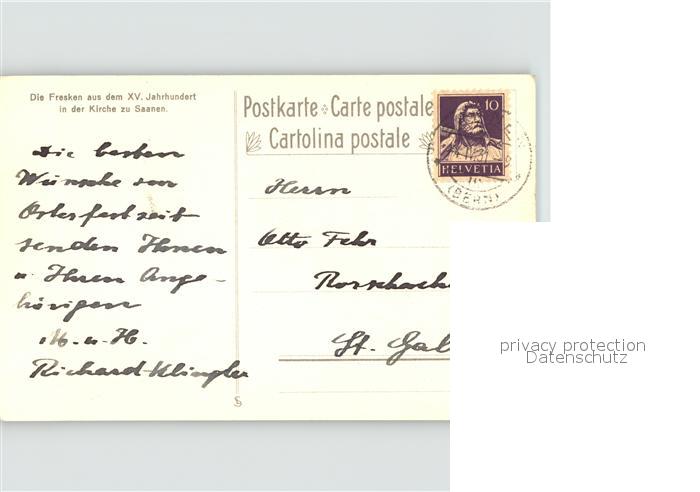 Die Fresken aus dem XV. Jahrhundert
in der Kirche zu Saanen.
Postkarte Carte postale
Cartolina postale
10
HELVETIA
(BERN)
Die besten
Wünsche zur
Osterfestzeit
senden Ihnen
u Ihren Ange-
hörigen
M. u. H.
Richard Klingler
Herrn
Otto Fehr
Rorschach
St. Gal
privacy protection
Datenschutz